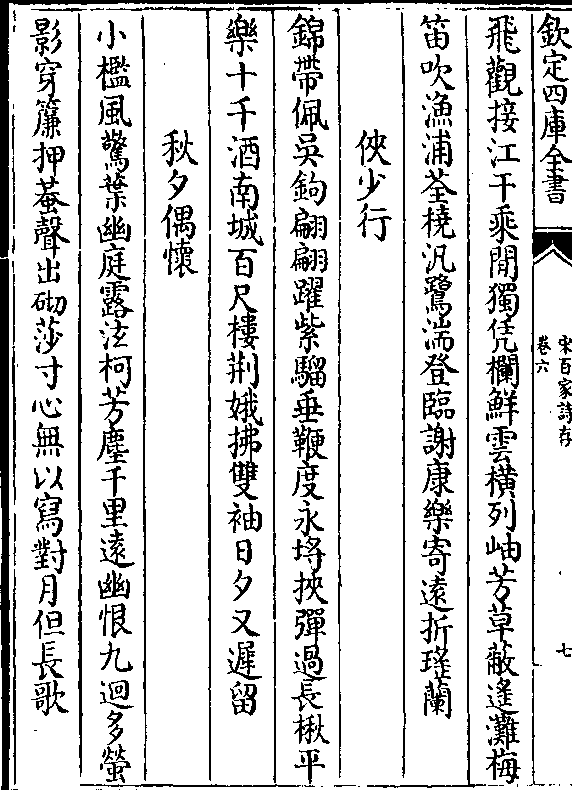 欽定四庫全書
宋百家詩存
卷六
七
飛觀接江干乘閒獨凭欄鮮雲橫列岫芳草蔽遙灘梅
笛吹漁浦荃橈汎鷺湍登臨謝康樂寄遠折瑤蘭
俠少行
錦帶佩吳鉤翩翩躍紫騮垂鞭度永埒挾彈過長楸平
樂十千酒南城百尺樓荆娥拂雙袖日夕又遲留
秋夕偶懷
小檻風驚葉幽庭露泫柯芳塵千里遠幽恨九迴多螢
影穿簾押蛩聲出砌莎寸心無以寫對月但長歌